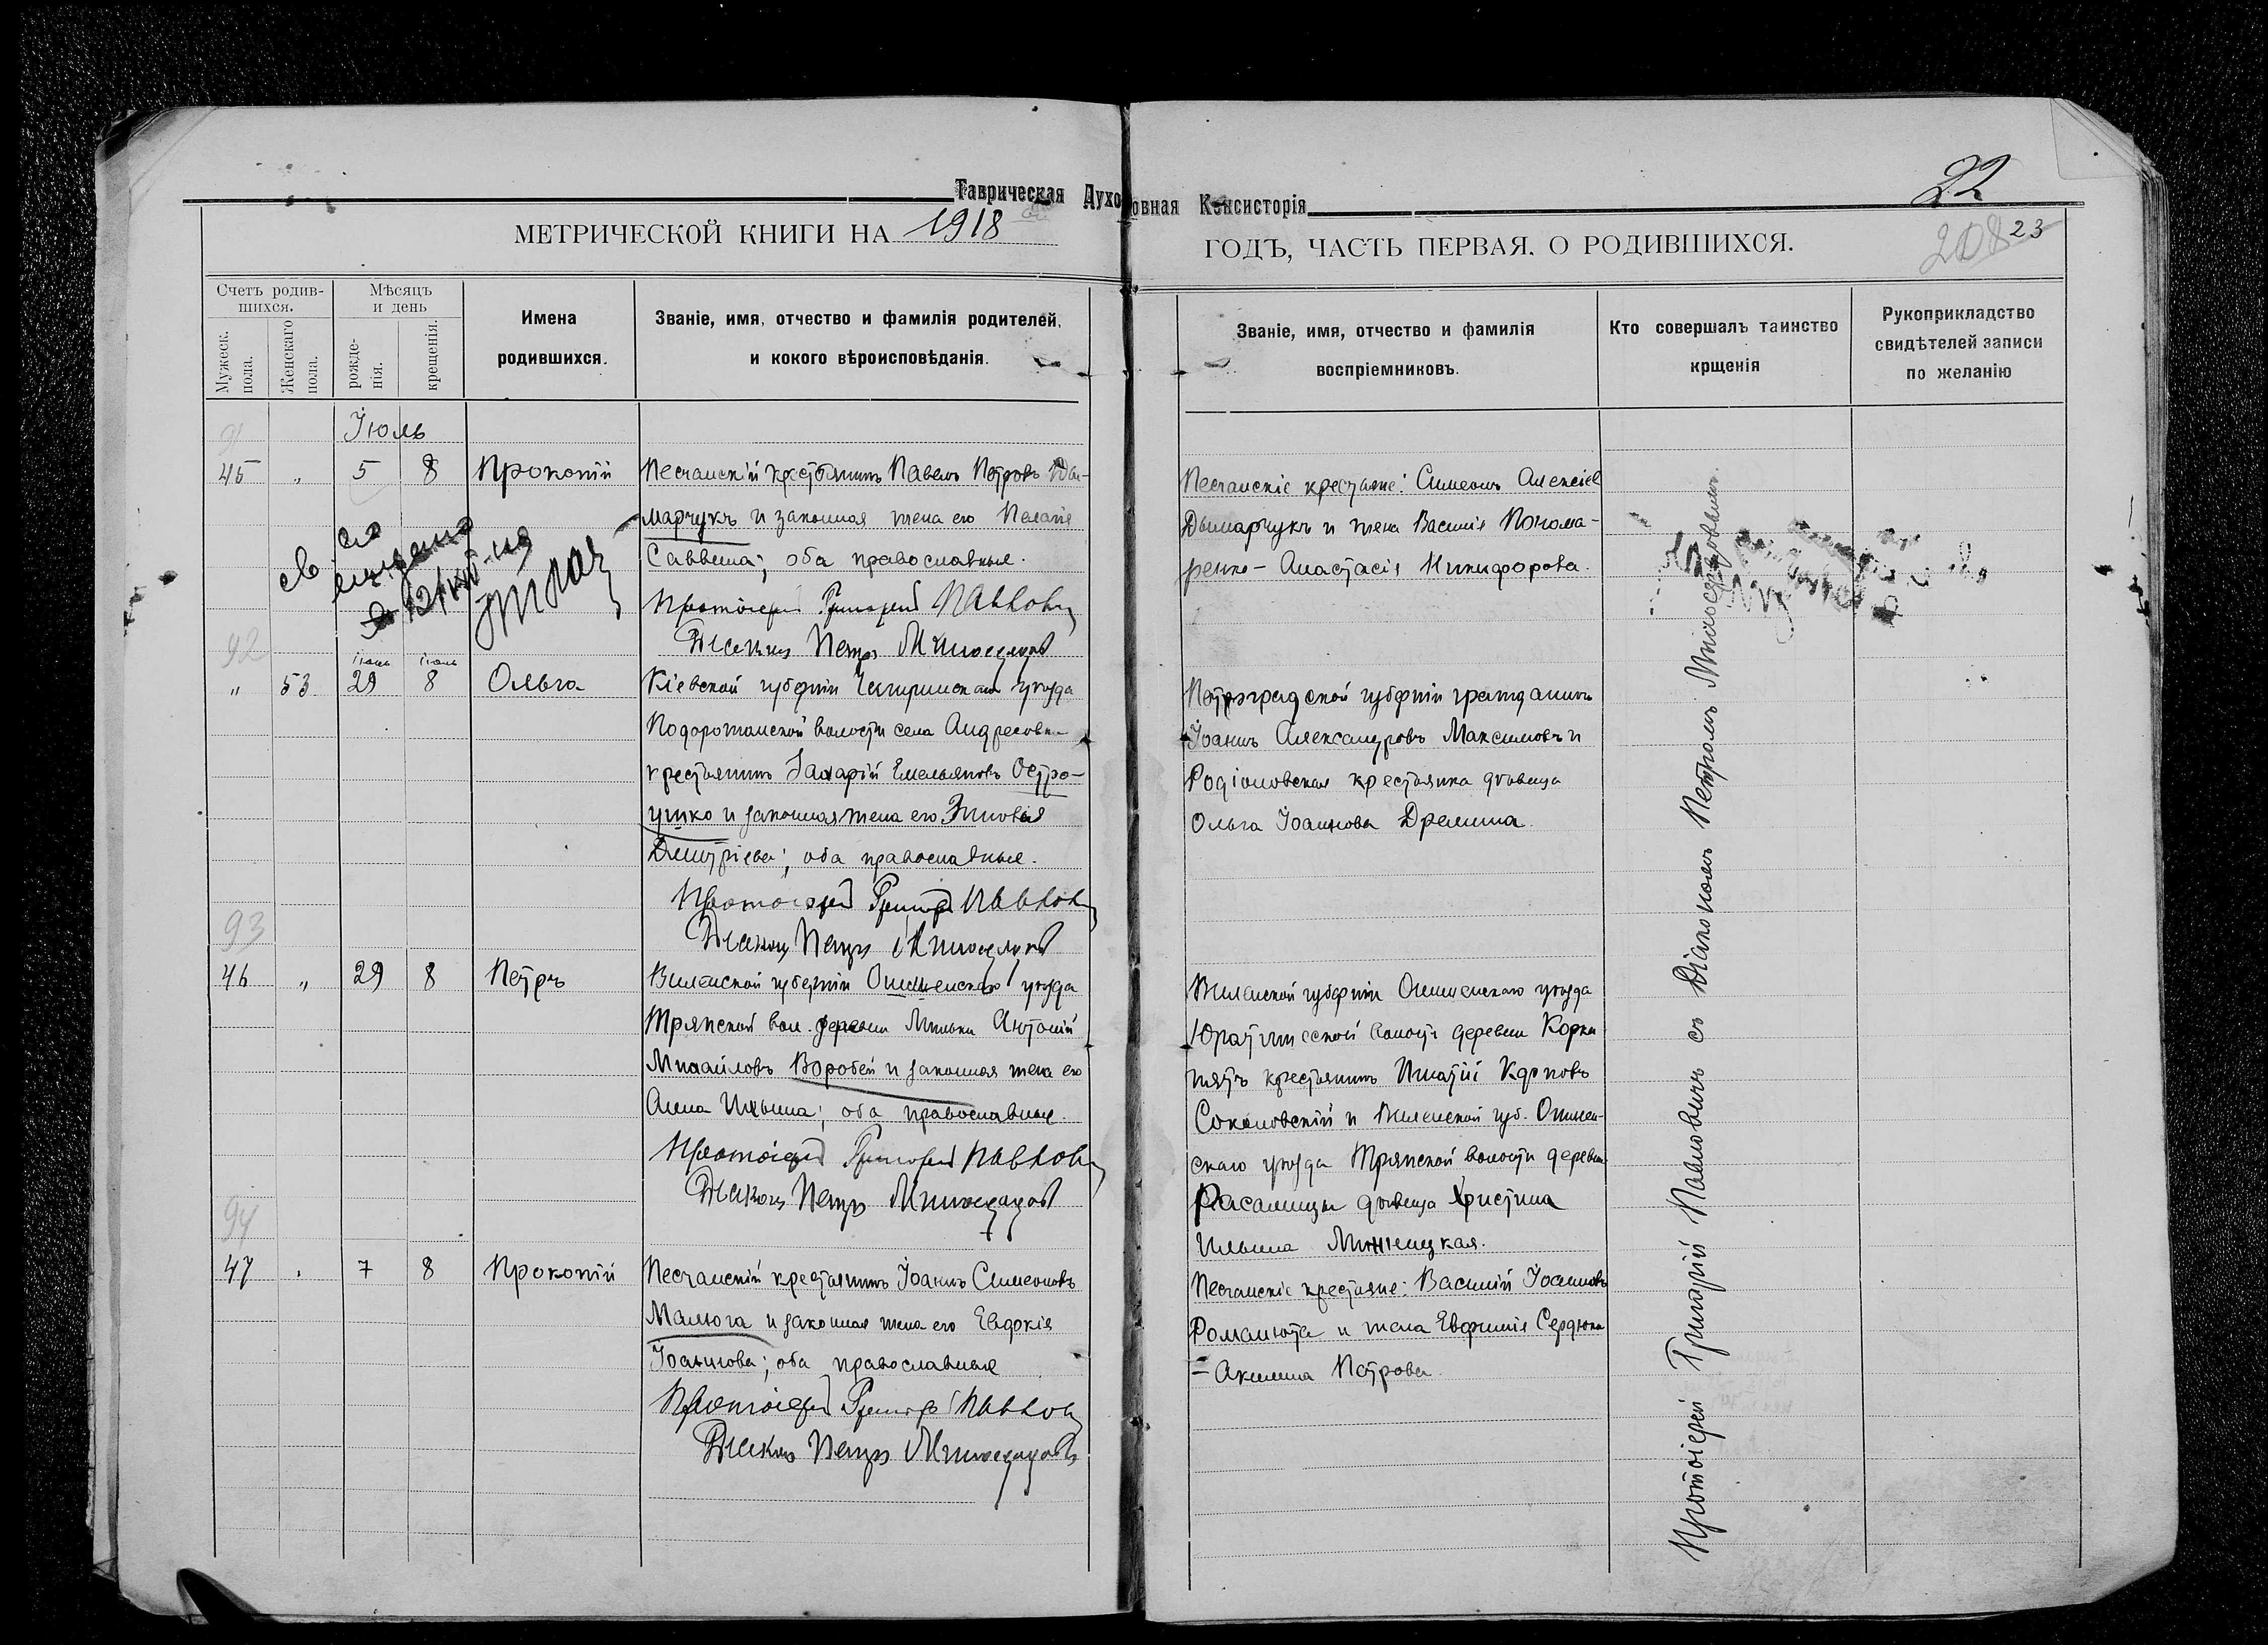 Таврическая Духовная Консисторія
22
МЕТРИЧЕСКОЙ КНИГИ НА 1918
ГОДЪ, ЧАСТЬ ПЕРВАЯ. О РОДИВШИХСЯ.
208 23
Счетъ родив-
шихся.
Мужеск.
пола.
Женскаго
пола.
Мѣсяцъ
и день
рожде-
нія.
крещенія.
Имена
родившихся.
Званіе, имя, отчество и фамилія родителей,
и кокого вѣроисповѣданія.
Званіе, имя, отчество и фамилія
воспріемниковъ.
Кто совершалъ таинство
крщенія
Рукоприкладство
свидѣтелей записи
по желанію
91
Іюль
45 „ 5 8 Прокопій
Песчанскій крестьянинъ Павелъ Петровъ Ды-
марчукъ и законная жена его Пелагія
Саввина; оба православные.
Протоіерей Григорій Павлович
Діаконъ Петръ Милосердовъ
Песчанскіе крестьяне: Симеонъ Алексіев
Дымарчукъ и жена Василія Понома-
ренко – Анастасія Никифорова.
92
Іюнь Іюль
„ 53 29 8 Ольга
Кіевской губерніи Чигиринскаго уѣзда
Подорожанской волости села Андреевки
крестьянинъ Захарій Емельяновъ Остро-
ушко и законная жена его Зиновія
Димитріева; оба православные.
Протоіерей Григорій Павлович
Діаконъ Петръ Милосердовъ
Петроградской губерніи гражданинъ
Іоаннъ Александровъ Максимовъ и
Родіоновская крестьянка дѣвица
Ольга Іоаннова Дремина.
93
46 „ 29 8 Петръ
Виленской губерніи Ошмянскаго уѣзда
вол. деревни Антоній
Михайловъ Воробей и законная жена его
Анна Ильина; оба православные.
Протоіерей Григорій Павлович
Діаконъ Петръ Милосердовъ
Виленской губерніи Ошмянскаго уѣзда
волости деревни
крестьянинъ Игнатій Карповъ
Соколовскій и Виленской губ. Ошмян-
скаго уѣзда волости деревни
дѣвица Христина
Ильина
94
47 „ 7 8 Прокопій
Песчанскій крестьянинъ Іоаннъ Симеоновъ
Малюга и законная жена его Евдокія
Іоаннова; оба православные
Протоіерей Григорій Павлович
Діаконъ Петръ Милосердовъ
Песчанскіе крестьяне: Василій Іоанновъ
Романюта и жена Евфимія Сердюка
– Акилина Петрова.
Протоіерей Григорій Павловичъ съ Діакономъ Петромъ Милосердовымъ